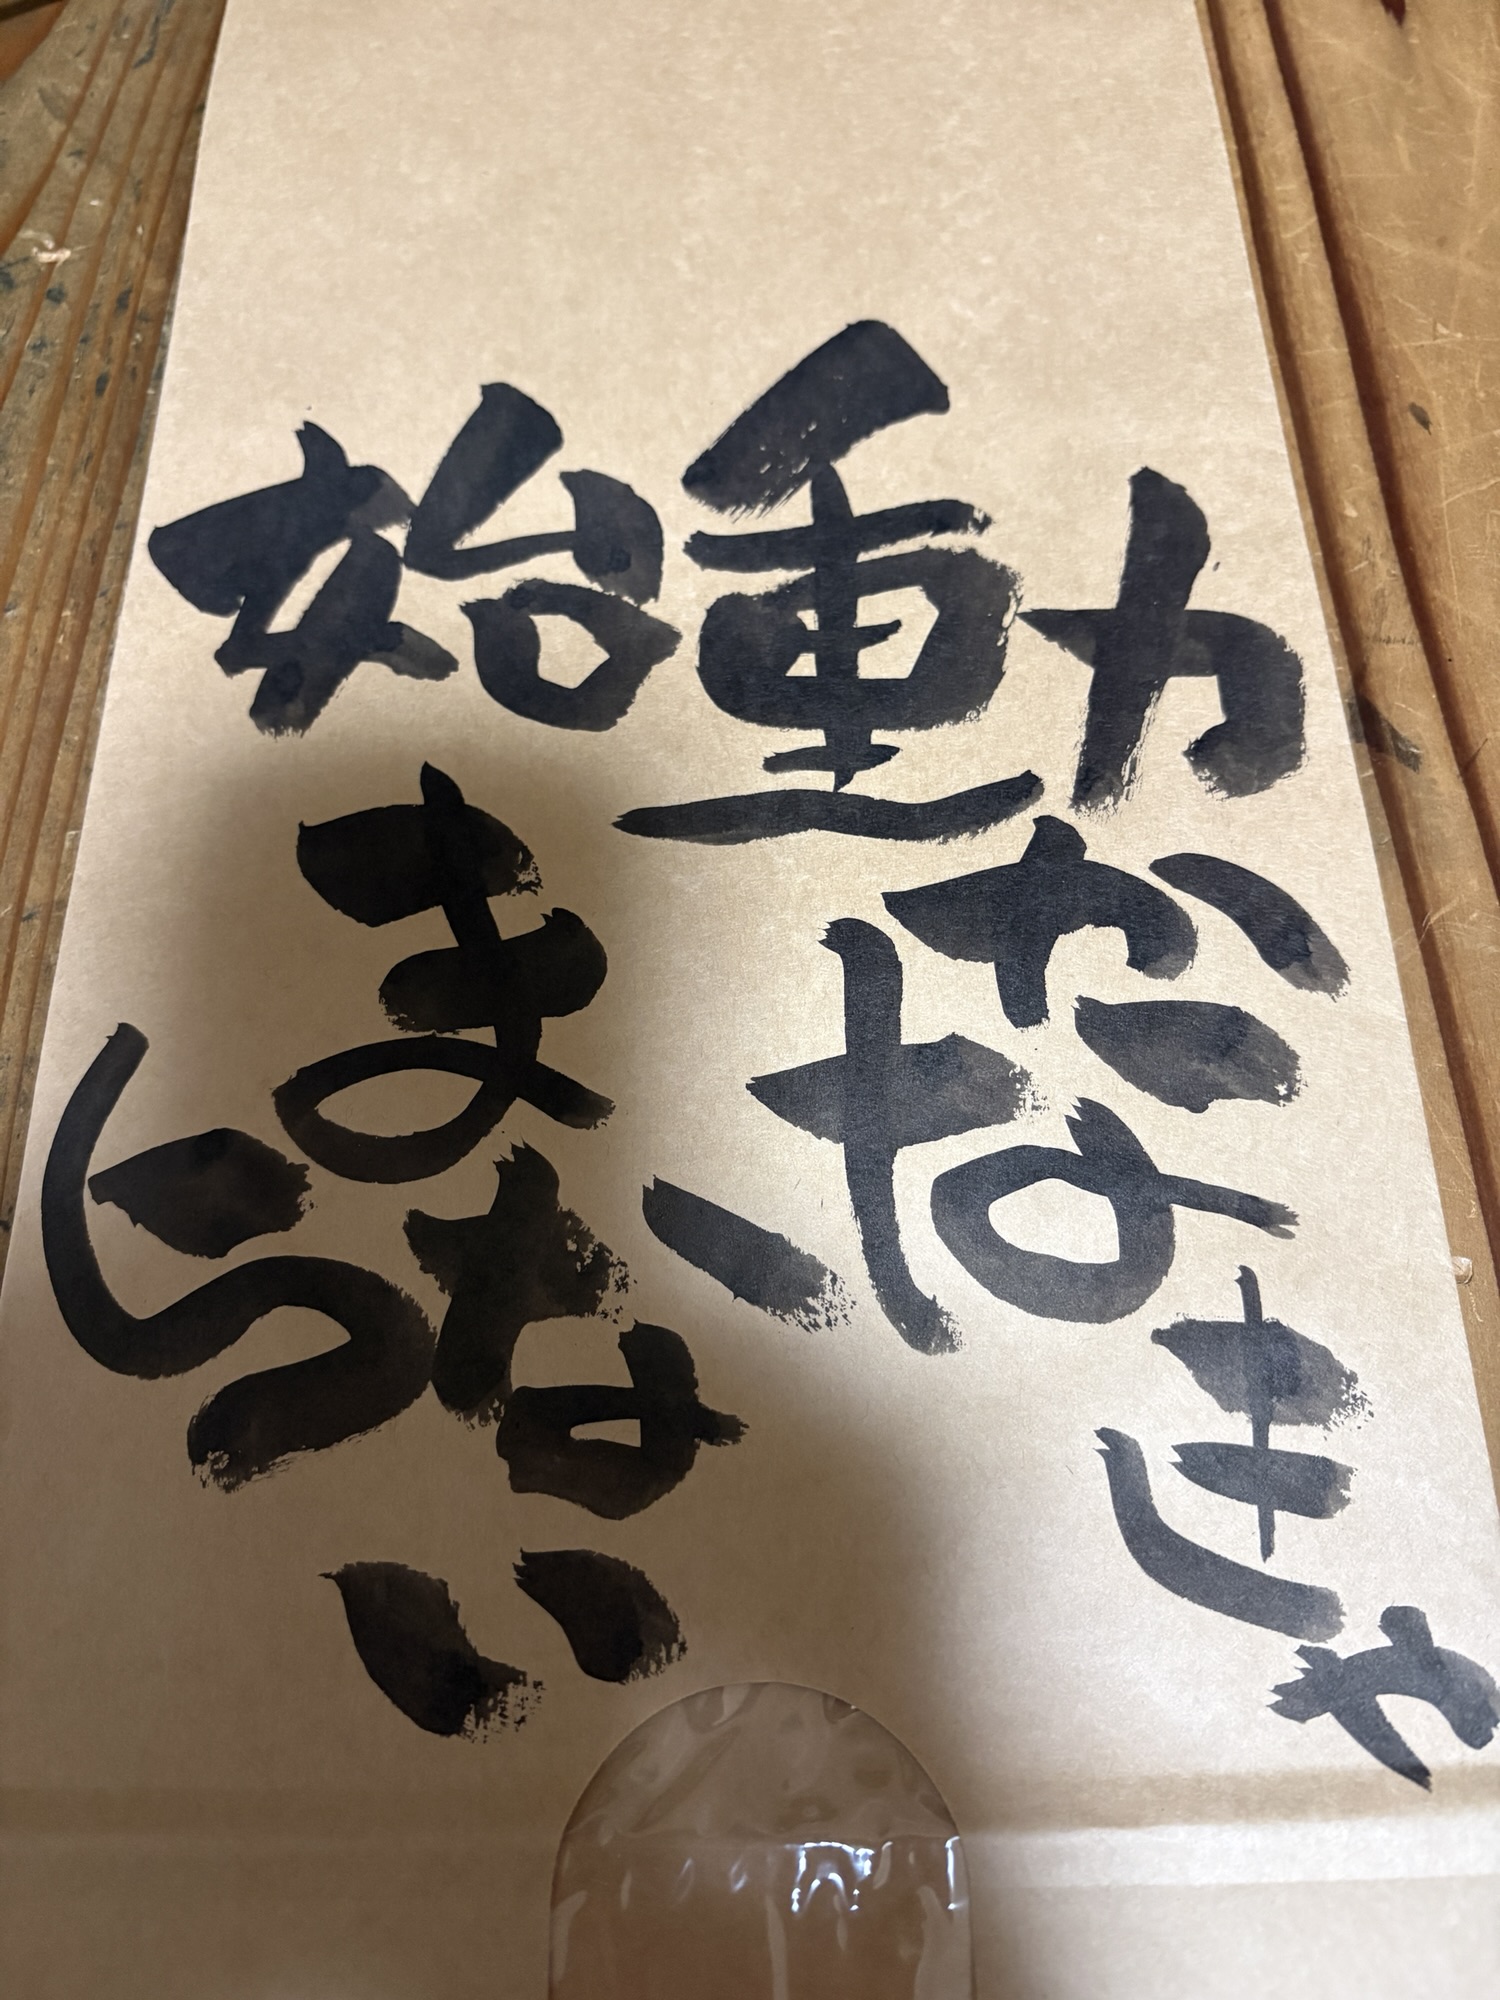 動かなきゃ
始まらない